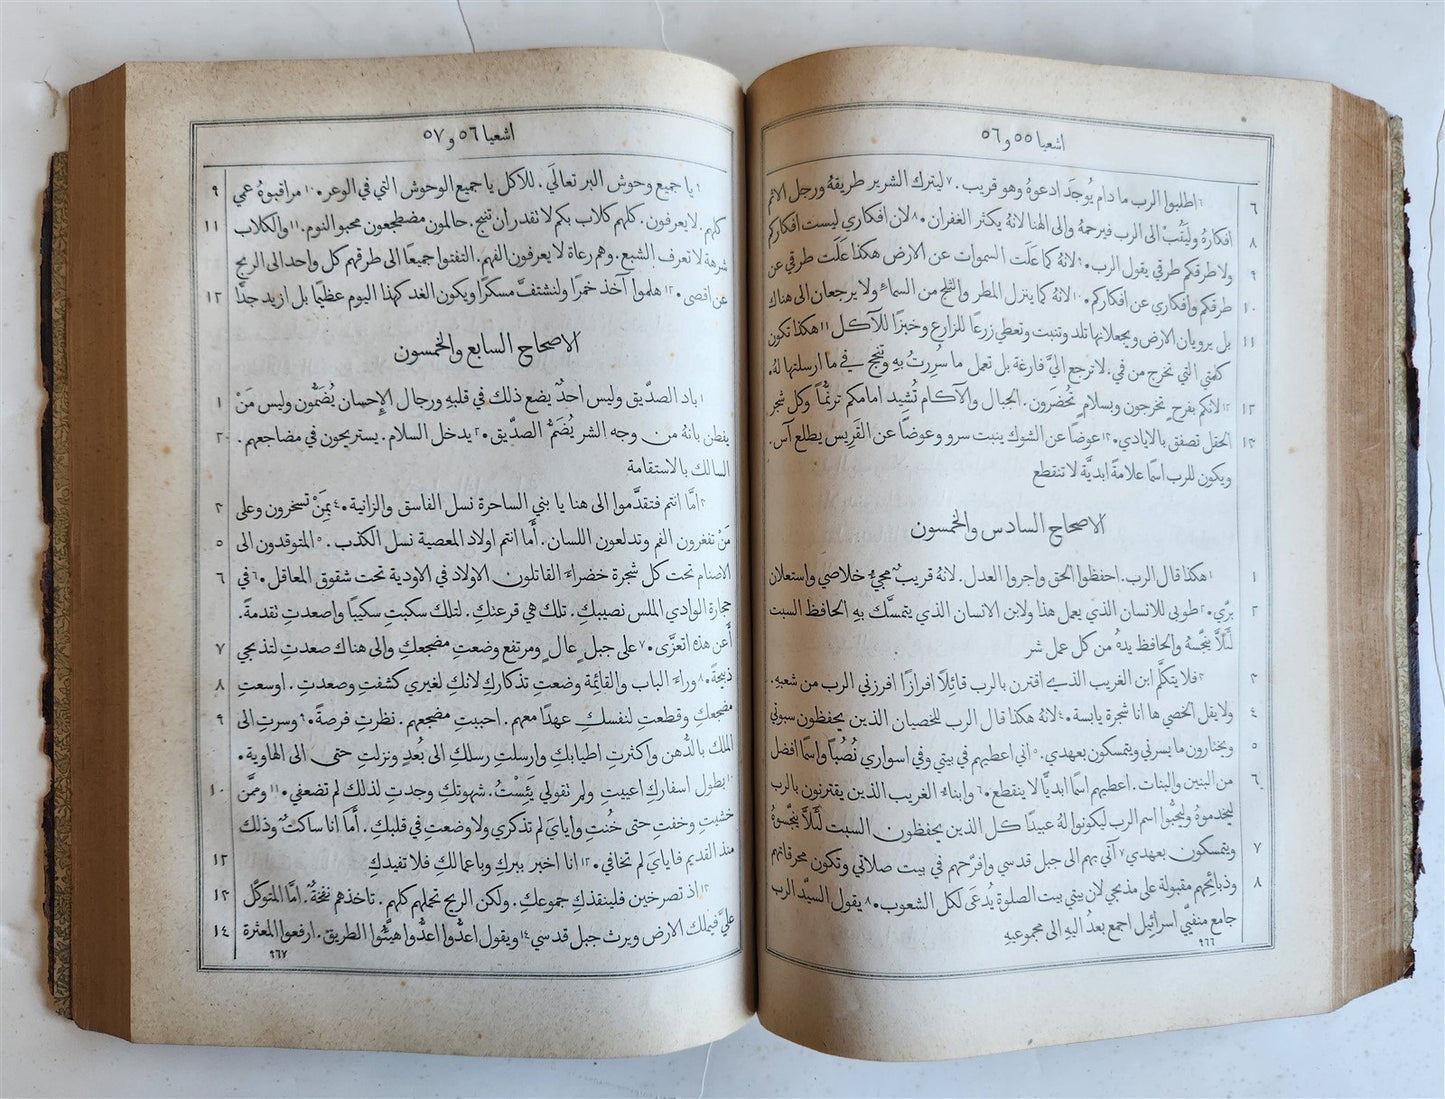 اشعيا ٥٥ و ٥٦
٦ ٦ اطلبوا الرب ما دام يُوجَد ادعوهُ وهو قريب. ٧ ليترك الشرير طريقهُ ورجل الاثم
٨ افكارهُ وليَتُبْ الى الرب فيرحمهُ والى الهنا لانهُ يكثر الغفران. ٨ لان افكاري ليست افكاركم
٩ ولا طرقكم طرقي يقول الرب. ٩ لانهُ كما عَلَت السموات عن الارض هكذا عَلَت طرقي عن
١٠ طرقكم وافكاري عن افكاركم. ١٠ لانهُ كما ينزل المطر والثلج من السماء ولا يرجعان الى هناك
١١ بل يرويان الارض ويجعلانها تلد وتنبت وتعطي زرعًا للزارع وخبزًا للآكل ١١ هكذا تكون
كلمتي التي تخرج من فمي. لا ترجع اليَّ فارغة بل تعمل ما سُررتُ بهِ وتنجح في ما ارسلتها لهُ.
١٢ ١٢ لانكم بفرح تخرجون وبسلام تُحضَرون. الجبال والآكام تُشيد امامكم ترنُّمًا وكل شجر
١٣ الحقل تصفق بالايادي. ١٣ عوضًا عن الشوك ينبت سرو وعوضًا عن القَرِيس يطلع آس.
ويكون للرب اسمًا علامةً ابديَّة لا تنقطع
الاصحاح السادس والخمسون
١ ١ هكذا قال الرب. احفظوا الحق واجروا العدل. لانهُ قريبٌ مجيءُ خلاصي واستعلان
٢ برّي. ٢ طوبى للانسان الذي يعمل هذا ولابن الانسان الذي يتمسَّك بهِ الحافظ السبت
لئَلَّا ينجّسهُ والحافظ يدهُ من كل عمل شر
٣ ٣ فلا يتكلَّم ابن الغريب الذي اقترن بالرب قائلًا افرازًا افرزني الرب من شعبهِ.
٤ ولا يقل الخصي ها انا شجرة يابسة. ٤ لانهُ هكذا قال الرب للخصيان الذين يحفظون سبوتي
٥ ويختارون ما يسرني ويتمسكون بعهدي. ٥ اني اعطيهم في بيتي وفي اسواري نُصُبًا واسمًا افضل
٦ من البنين والبنات. اعطيهم اسمًا ابديًّا لا ينقطع. ٦ وابناءُ الغريب الذين يقترنون بالرب
ليخدموهُ وليحبُّوا اسم الرب ليكونوا لهُ عبيدًا كل الذين يحفظون السبت لئَلَّا ينجّسوهُ
٧ ويتمسكون بعهدي ٧ آتي بهم الى جبل قدسي وافرّحهم في بيت صلاتي وتكون محرقاتهم
٨ وذبائحهم مقبولة على مذبحي لان بيتي بيت الصلوة يُدعَى لكل الشعوب. ٨ يقول السيّد الرب
جامع منفيّي اسرائيل اجمع بعدُ اليهِ الى مجموعيهِ
٩٦٦
اشعيا ٥٦ و ٥٧
٩ ٩ يا جميع وحوش البر تعاليَ. للاكل يا جميع الوحوش التي في الوعر. ١٠ مراقبوهُ عمي
١١ كلهم. لا يعرفون. كلهم كلاب بكم لا تقدر ان تنبح. حالمون مضطجعون محبو النوم. ١١ والكلاب
شرهة لا تعرف الشبع. وهم رعاة لا يعرفون الفهم. التفتوا جميعًا الى طرقهم كل واحد الى الربح
١٢ عن اقصى. ١٢ هلموا آخذ خمرًا ولنشتفَّ مسكرًا ويكون الغد كهذا اليوم عظيمًا بل ازيد جدًّا
الاصحاح السابع والخمسون
١ ١ باد الصدّيق وليس احدٌ يضع ذلك في قلبهِ ورجال الإحسان يُضَمُّون وليس مَنْ
٢ يفطن بانهُ من وجه الشر يُضَمُّ الصدّيق. ٢ يدخل السلام. يستريحون في مضاجعهم.
السالك بالاستقامة
٣ ٣ امَّا انتم فتقدَّموا الى هنا يا بني الساحرة نسل الفاسق والزانية. ٤ بِمَنْ تسخرون وعلى
٥ مَنْ تفغرون الفم وتدلعون اللسان. أَما انتم اولاد المعصية نسل الكذب. ٥ المتوقدون الى
٦ الاصنام تحت كل شجرة خضراءَ القاتلون الاولاد في الاودية تحت شقوق المعاقل. ٦ في
حجارة الوادي الملس نصيبكِ. تلك هي قرعتكِ. لتلك سكبتِ سكيبًا واصعدتِ تقدمةً.
٧ أَعن هذه اتعزَّى. ٧ على جبلٍ عالٍ ومرتفع وضعتِ مضجعكِ والى هناك صعدتِ لتذبحي
٨ ذبيحةً. ٨ وراءَ الباب والقائمة وضعتِ تذكاركِ لانكِ لغيري كشفتِ وصعدتِ. اوسعتِ
٩ مضجعكِ وقطعتِ لنفسكِ عهدًا معهم. احببتِ مضجعهم. نظرتِ فرصةً. ٩ وسرتِ الى
الملك بالدُّهن واكثرتِ اطيابكِ وارسلتِ رسلكِ الى بُعدٍ ونزلتِ حتى الى الهاوية.
١٠ ١٠ بطول اسفاركِ اعييتِ ولم تقولي يَئِسْتُ. شهوتكِ وجدتِ لذلك لم تضعفي. ١١ وممَّن
خشيتِ وخفتِ حتى خُنتِ واياي لم تذكري ولا وضعتِ في قلبكِ. أَمَا انا ساكتٌ وذلك
١٢ منذ القديم فاياي لم تخافي. ١٢ انا اخبر ببركِ وباعمالكِ فلا تفيدكِ
١٣ ١٣ اذ تصرخين فلينقذكِ جموعكِ. ولكن الريح تحملهم كلهم. تاخذهم نفخةٌ. امَّا المتوكّل
١٤ عليَّ فيملك الارض ويرث جبل قدسي ١٤ ويقول اعدُّوا اعدُّوا هيّئُوا الطريق. ارفعوا المعثرة
٩٦٧